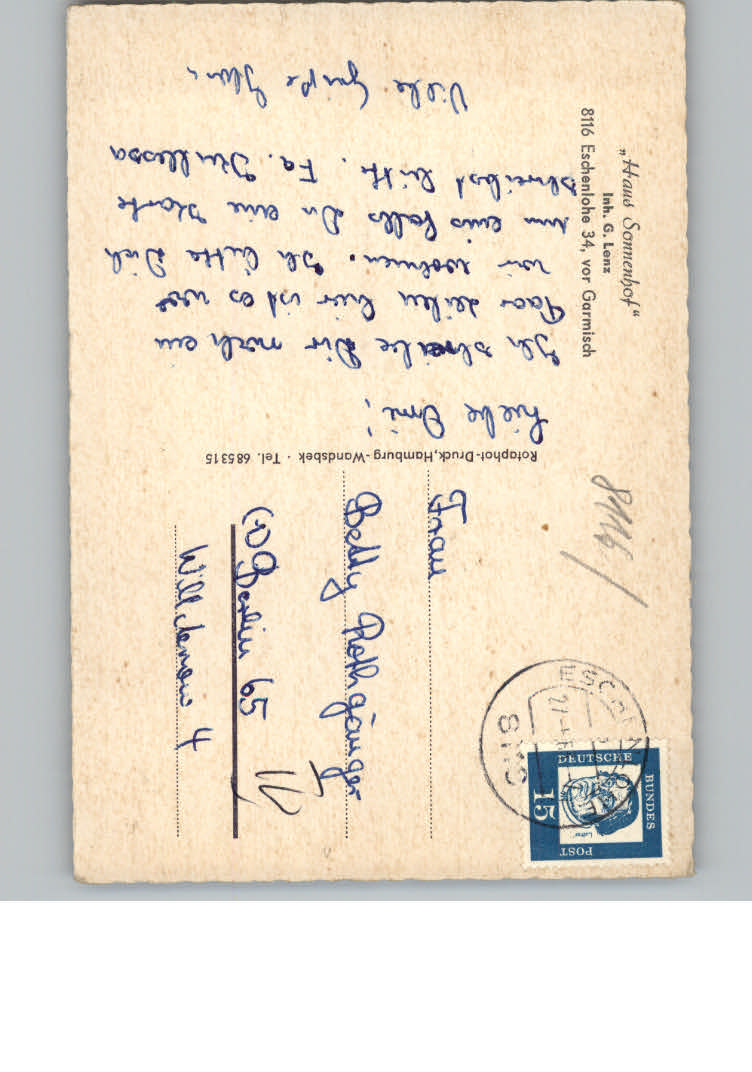 „Haus Sonnenhof“
Inh. G. Lenz
8116 Eschenlohe 34, vor Garmisch
Liebe Omi!
Ich schreibe Dir noch ein
Paar Zeilen hier ist es wo
wir wohnen. Ich bitte Dich
um eins falls Du eine Karte
schreibst bitte. Fa.
Viele Grüße
Rotaphot-Druck, Hamburg-Wandsbek · Tel. 685315
8116
Frau
Betty Rothgänger
(1) Berlin 65
Willdenow 4
ESCHENLOHE
DEUTSCHE
BUNDES
POST
15
Luther